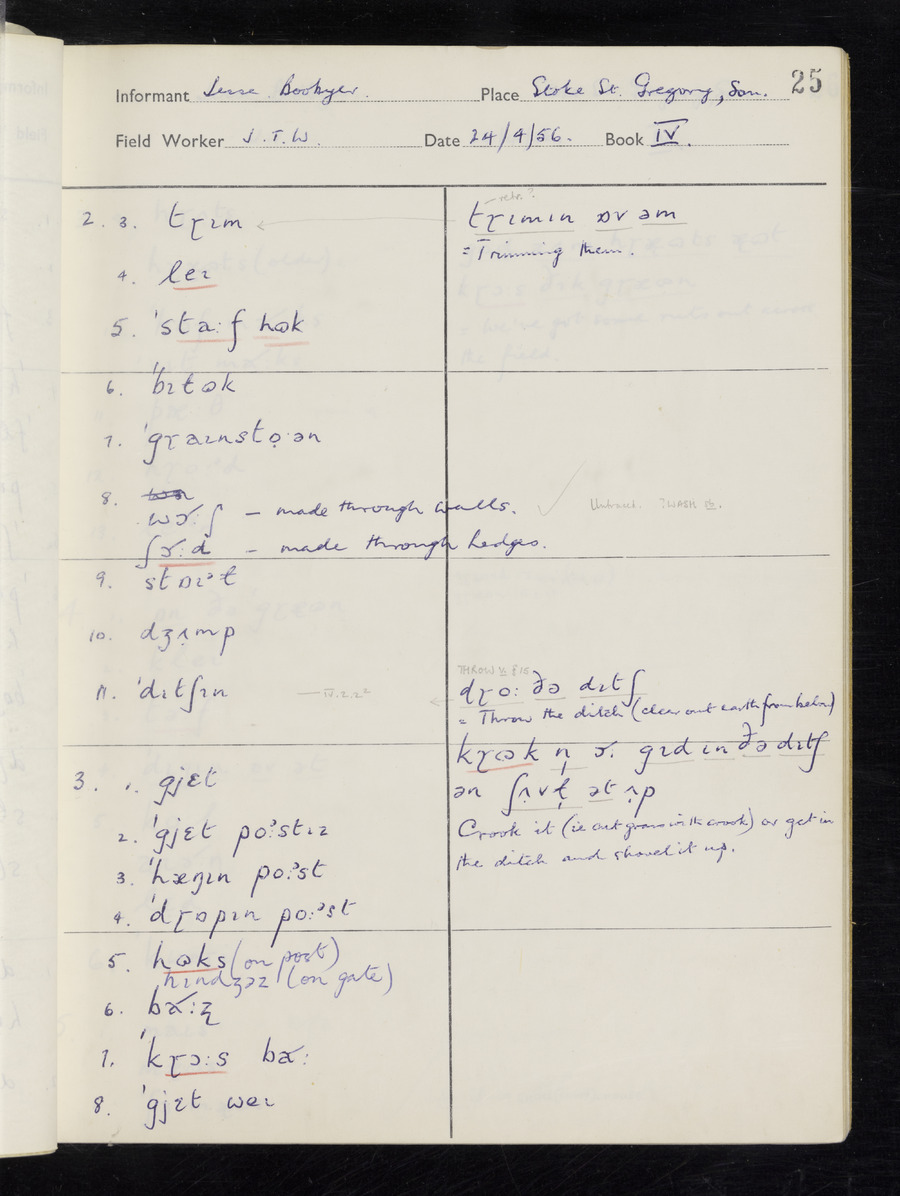 25
Informant Jesse Boobyer. Place Stoke St. Gregory, Som.
Field Worker J.T.W. Date 24/4/56. Book IV.
2. 3. tɽɪm
4. leɪ
5. ˈstaːf hɷk
6. ˈbɪtɷk
7. ˈgɽaɪnstọˑən
8.
wɔ˞ːʃ – made through walls.
ʃɔ˞ːd – made through hedges.
9. stɒɪᵊɫ
10. dʒʌ̣mp
11. ˈdɪtʃɪn
IV.2.2
3. 1. gjɛt
2. ˈgjɛt poːˀstɪz
3. ˈhæŋɪn poːᵊst
4. ˈdɽɒpɪn poːᵊst
5. hɷks (on post)
hɪndʒəz (on gate)
6. ba˞ːʐ
7. ˈkɽɔːs ba˞ː
8. ˈgjɛt weɪ
retr.?
tɽɪmɪn ɒv əm
= Trimming them.
THROW
dɽoː ðə dɪtʃ
= Throw the ditch (clear out earth from below)
kɽɷk n̩ ɔ˞ː gɪd ɪn ðə dɪtʃ
ən ʃʌ̣vɫ̩ ət ʌ̣p
Crook it (ie cut grass with crook) or get in
the ditch and shovel it up.